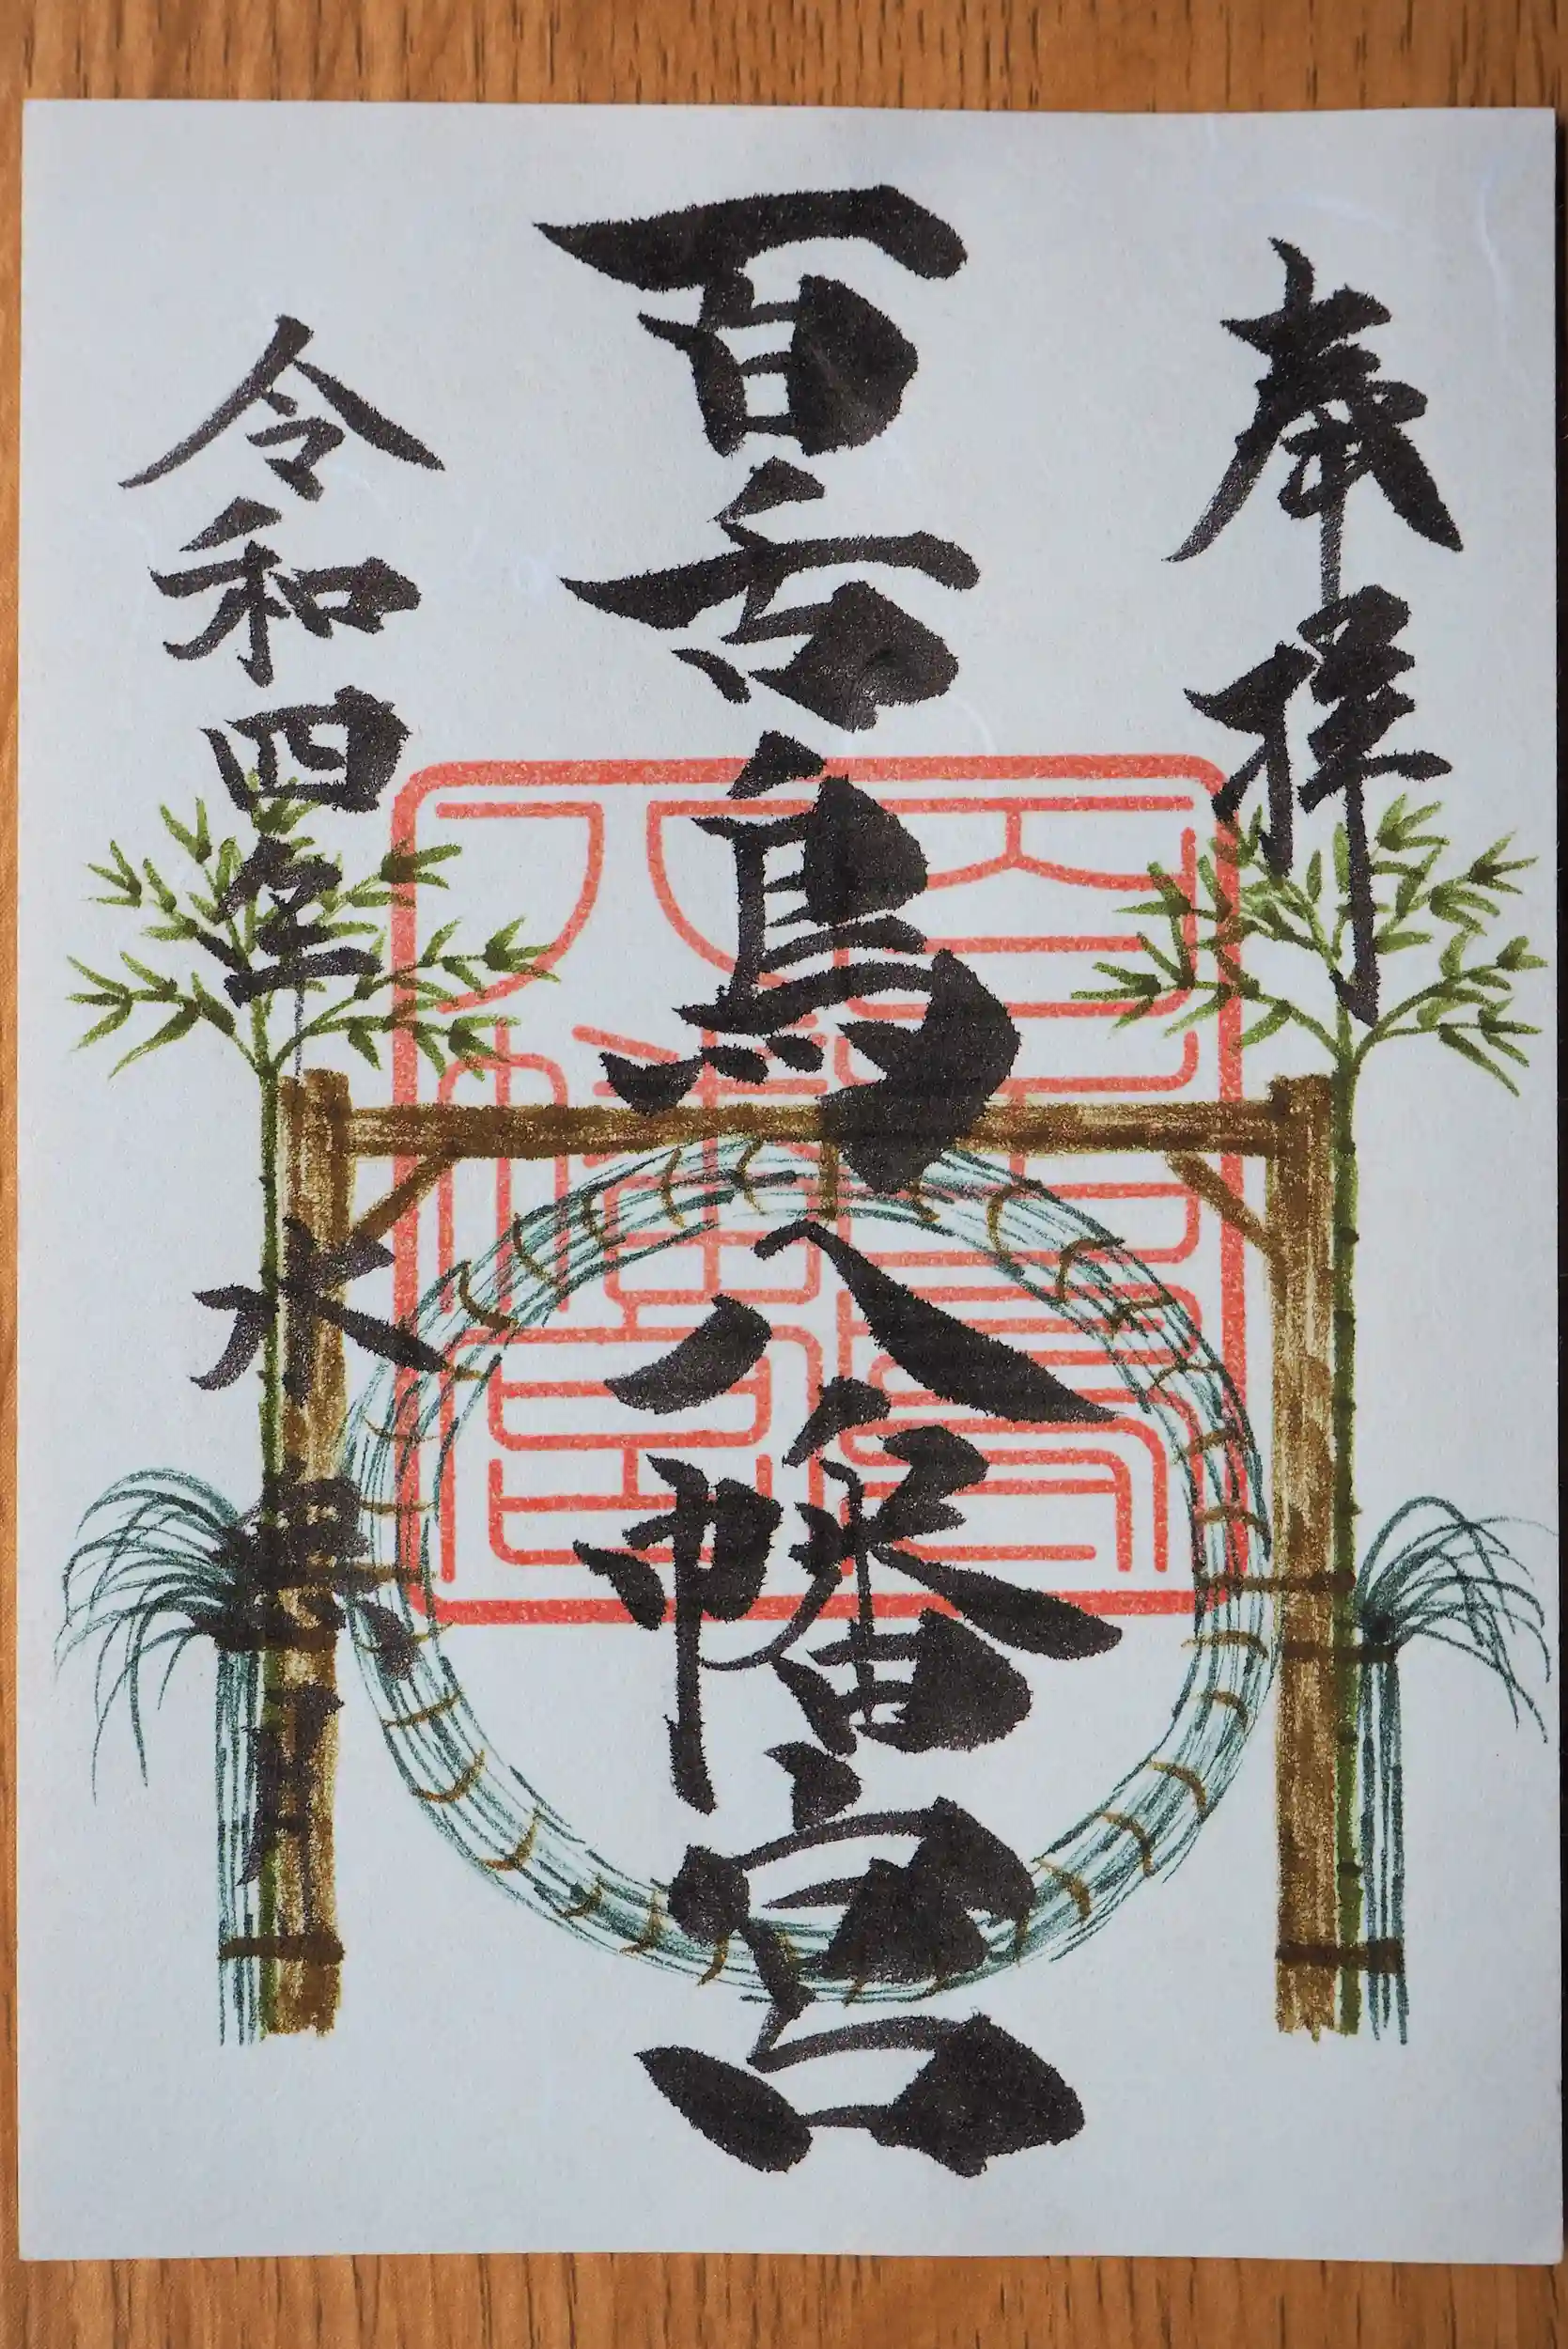 奉拝
百舌鳥八幡宮
令和四年 水無月
百舌鳥
八幡宮